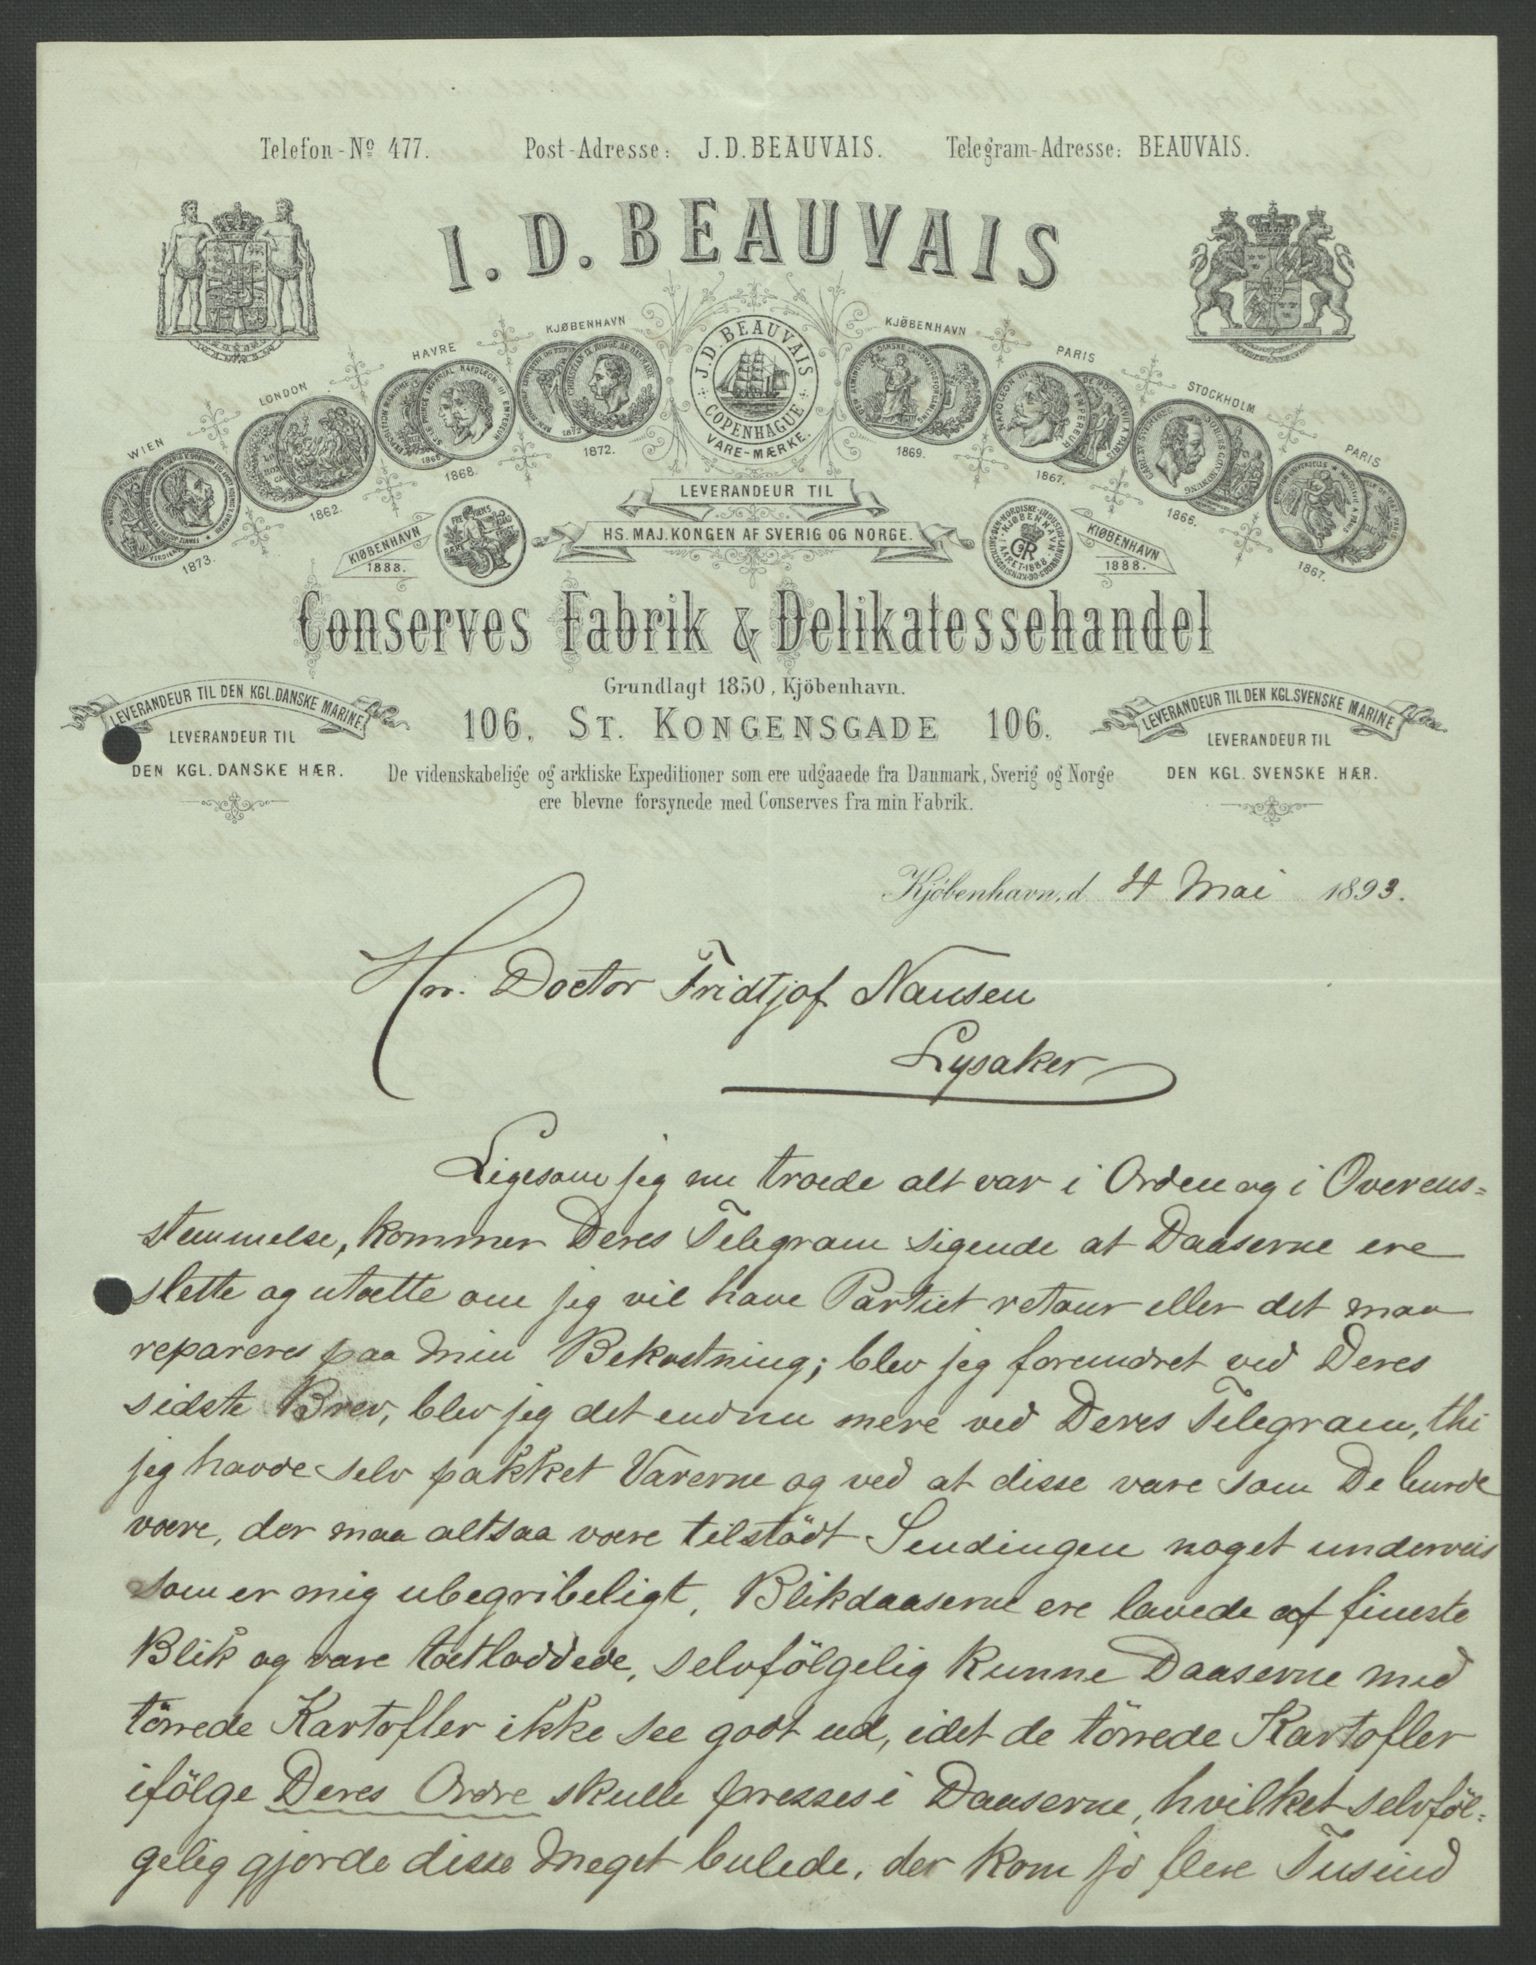 Telefon-No 477. Post-Adresse: J.D. BEAUVAIS. Telegram-Adresse: BEAUVAIS.
I. D. BEAUVAIS
WIEN
1873.
LONDON
1862.
HAVRE
1868.
KJØBENHAVN
1872.
J. D. BEAUVAIS
COPENHAGUE
VARE-MÆRKE.
KJØBENHAVN
1869.
PARIS
1867.
STOCKHOLM
1866.
PARIS
1867.
LEVERANDEUR TIL
HS. MAJ. KONGEN AF SVERIG OG NORGE.
KIØBENHAVN
1888.
KIØBENHAVN
1888.
Conserves Fabrik & Delikatessehandel
Grundlagt 1850, Kjöbenhavn.
106. ST. KONGENSGADE 106.
LEVERANDEUR TIL DEN KGL. DANSKE MARINE.
LEVERANDEUR TIL
DEN KGL. DANSKE HÆR.
LEVERANDEUR TIL DEN KGL. SVENSKE MARINE
LEVERANDEUR TIL
DEN KGL. SVENSKE HÆR.
De videnskabelige og arktiske Expeditioner som ere udgaaede fra Danmark, Sverig og Norge
ere blevne forsynede med Conserves fra min Fabrik.
Kjöbenhavn, d. 4 Mai 1893.
Hrr. Doctor Fridtjof Nansen
Lysaker
Ligesom jeg nu troede alt var i Orden og i Overens=
stemmelse, kommer Deres Telegram sigende at Daaserne ere
slette og utætte om jeg vil have Partiet retour eller det maa
repareres paa min Bekostning; blev jeg forundret ved Deres
sidste Brev, blev jeg det endnu mere ved Deres Telegram, thi
jeg havde selv pakket Varerne og ved at disse vare som De burde
være, der maa altsaa være tilstödt Sendingen noget underveis
som er mig ubegribeligt, Blikdaaserne ere lavede af fineste
Blik og vare tætloddede, selvfölgelig kunne Daaserne med
törrede Kartofler ikke see godt ud, idet de törrede Kartofler
ifölge Deres Ordre skulle presses i Daaserne, hvilket selvföl=
gelig gjorde disse meget bulede, der kom jo flere Tusind